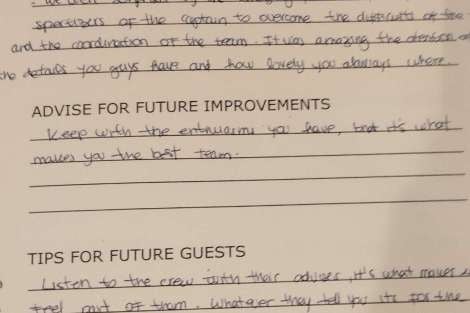 of the captain to overcome the of the
and the coordination of the team. It was amazing the atention
the details you guys have and how lovely you always where.
ADVISE FOR FUTURE IMPROVEMENTS
Keep with the you have, that it's what
makes you the best team.
TIPS FOR FUTURE GUESTS
Listen to the crew with their , it's what makes
feel part of them. Whatever they tell you its for the